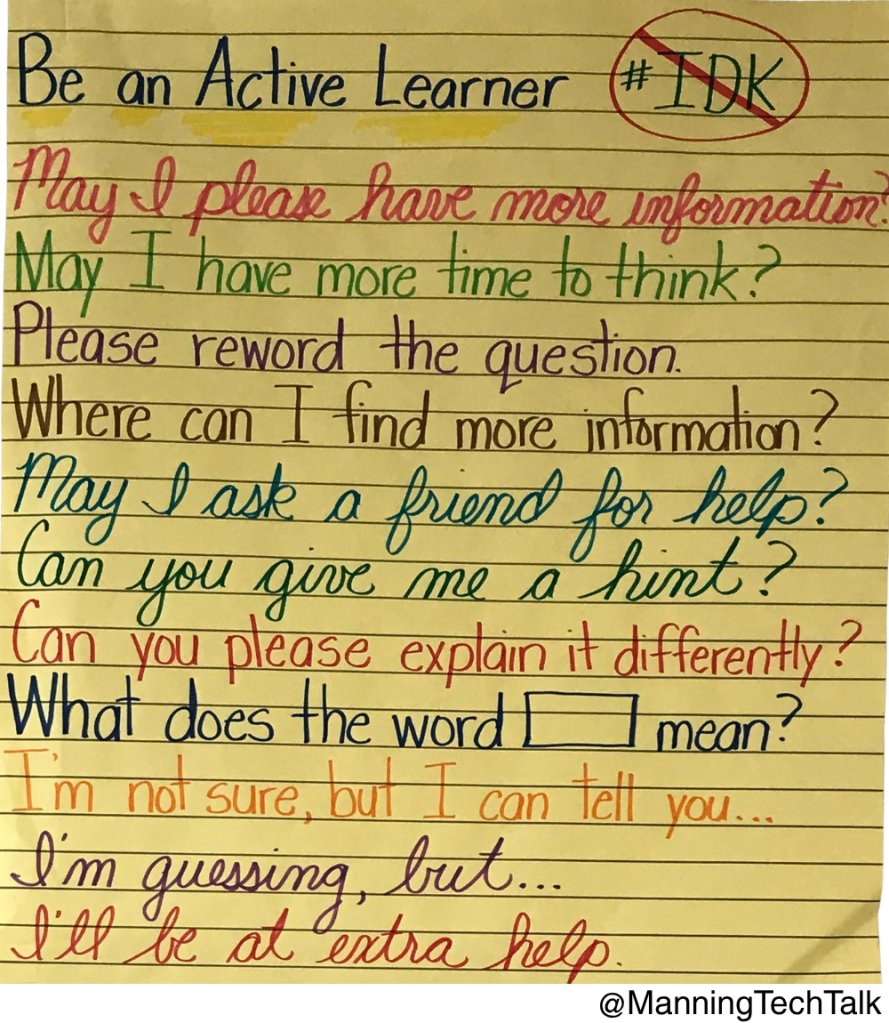 Be an Active Learner #IDK
May I please have more information?
May I have more time to think?
Please reword the question.
Where can I find more information?
May I ask a friend for help?
Can you give me a hint?
Can you please explain it differently?
What does the word mean?
I'm not sure, but I can tell you...
I'm guessing, but...
I'll be at extra help.
@ManningTechTalk